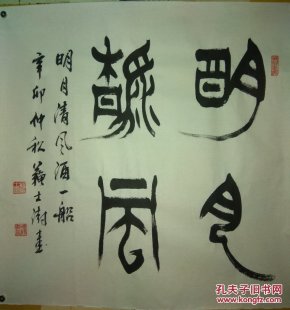 明月
明月清風酒一船
辛卯仲秋蘇士澍書
孔夫子旧书网